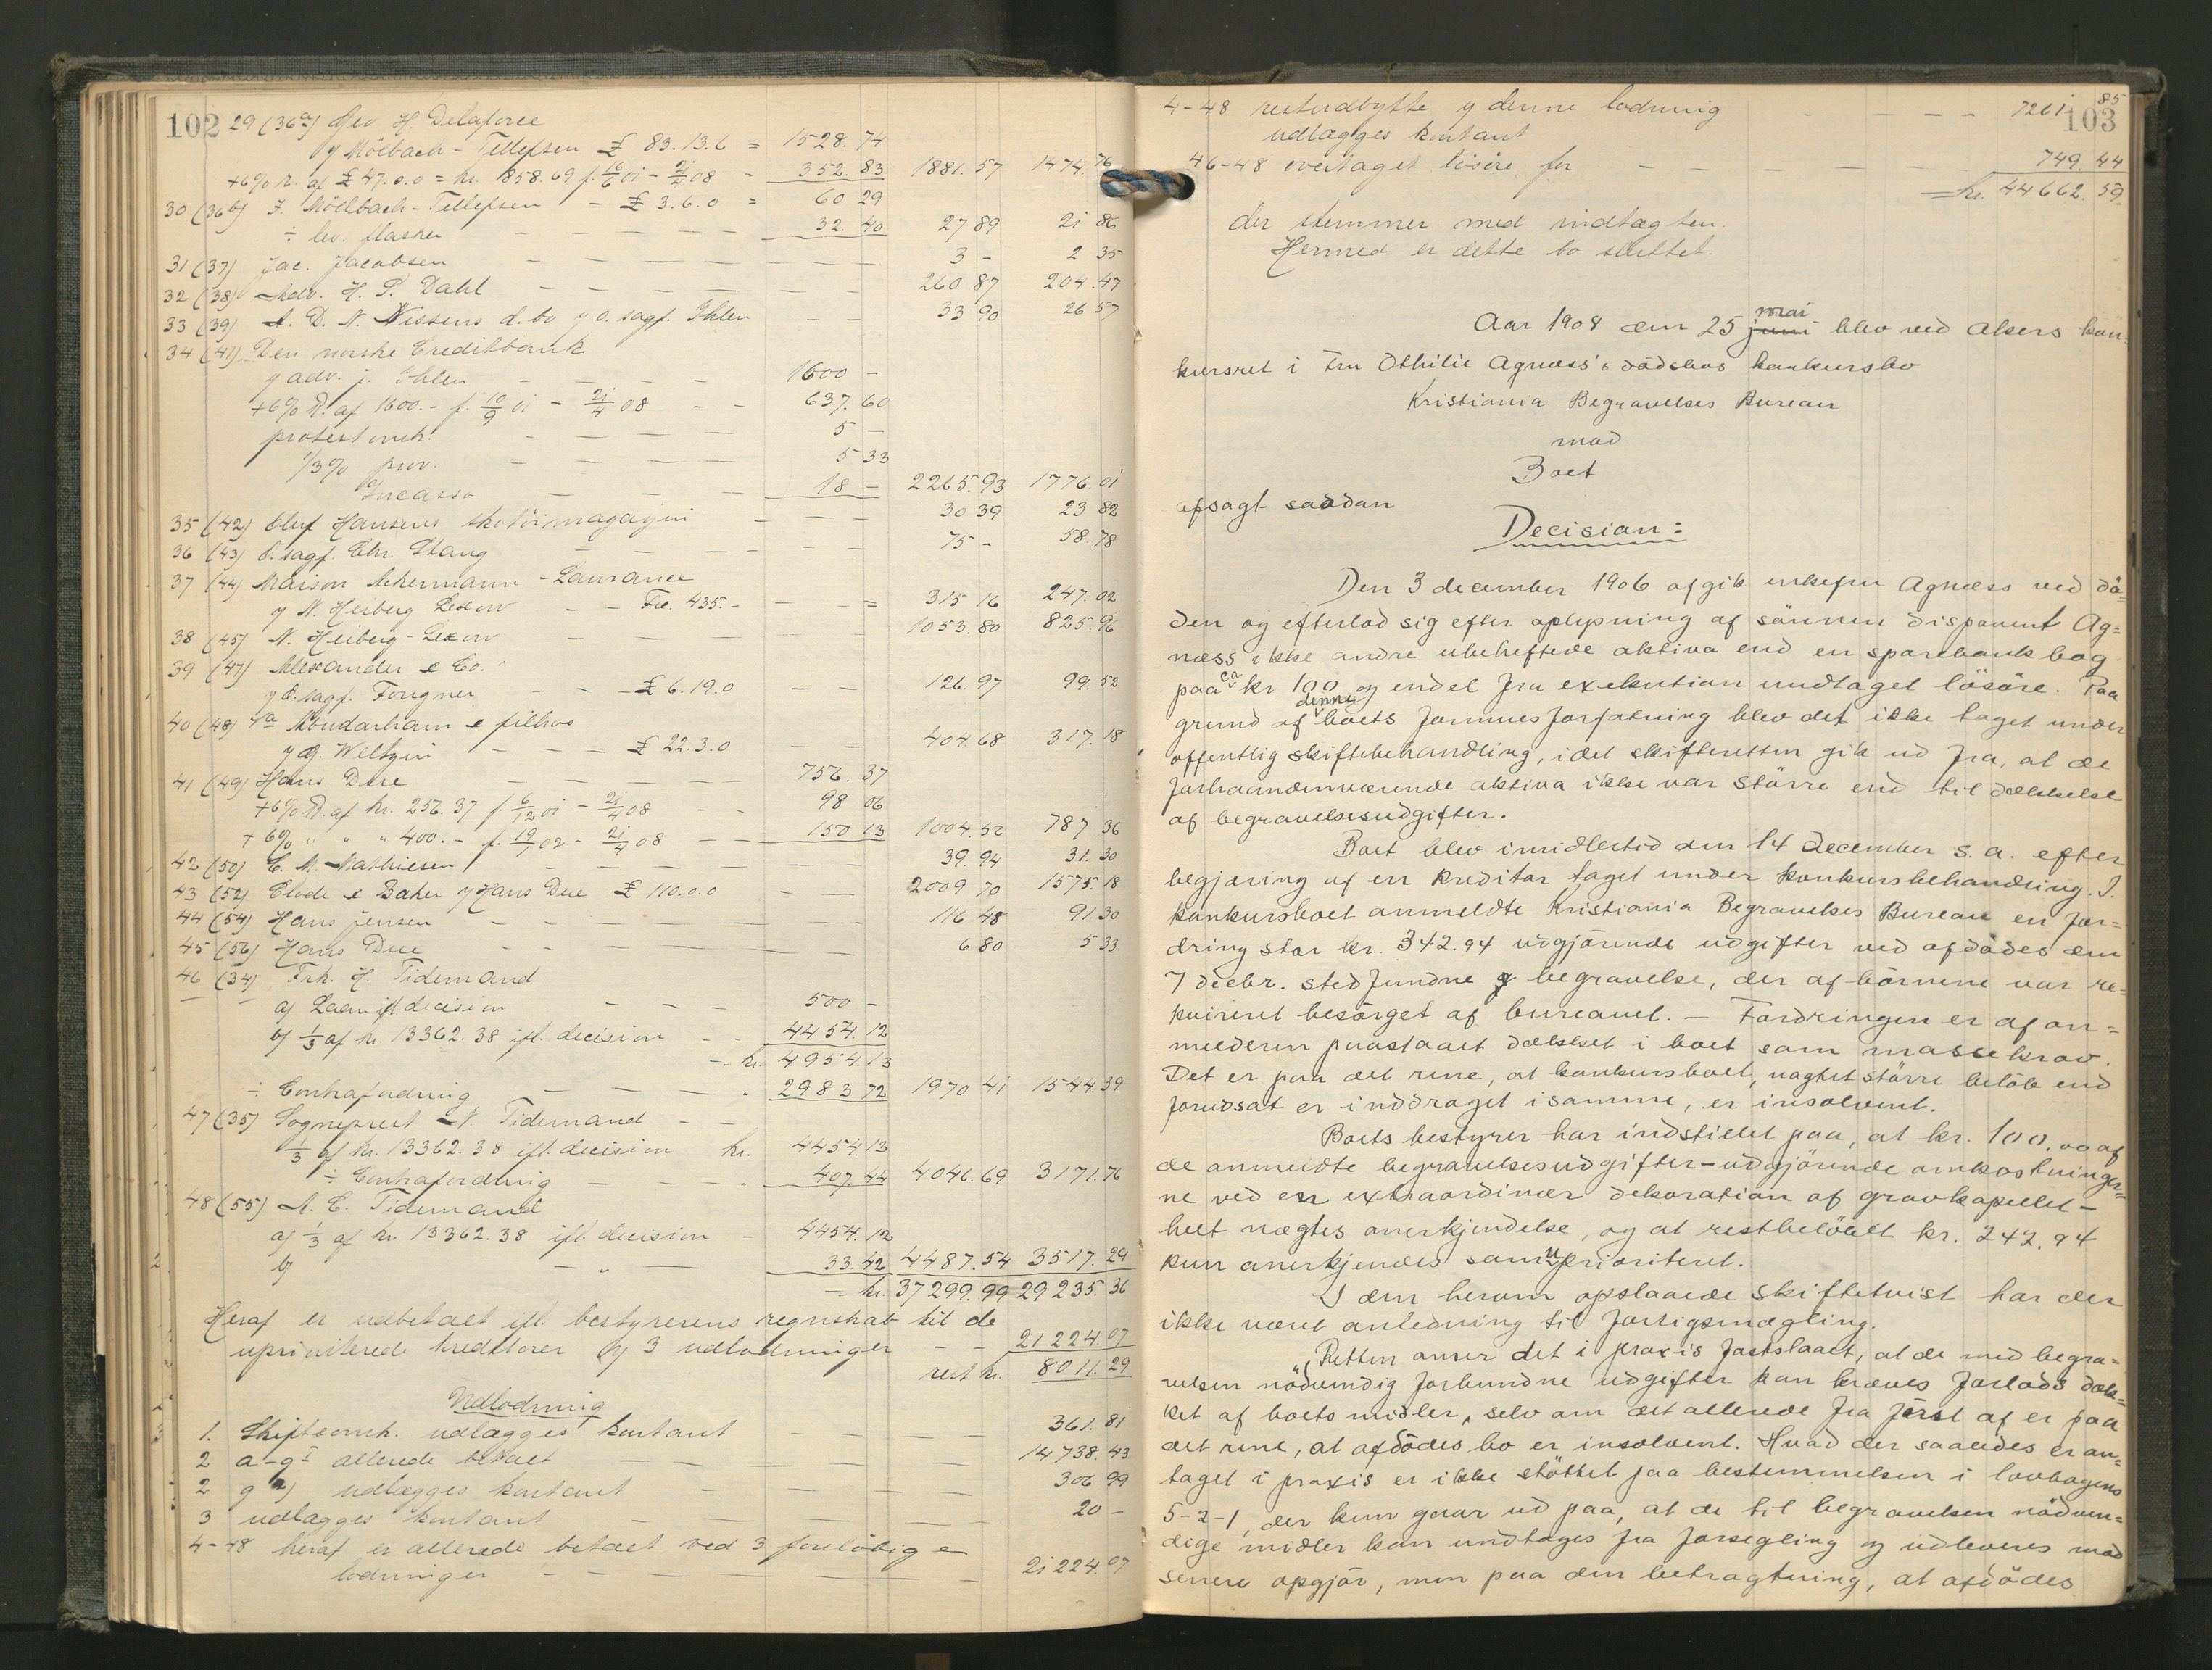 102
29 (36a) Geo H. Delaforce
v/ Mölbach-Tellefsen £ 83.13.6 = 1528.74
+6% r. af £ 47.0.0 = kr. 858.69 f. 6/6 01 - 21/4 08 - 352.83 1881.57 1474.76
30 (36b) J. Mölbach-Tellefsen - £ 3.6.0 = 60 29
÷ lev. flasker - - - 32.40 27 89 21 86
31 (37) Jac. Jacobsen - - - 3 - 2 35
32 (38) Adv. H. P. Dahl - - - 260 87 204.47
33 (39) A. D. N. Nissens d.bo v/ o.sagf. Ihlen - - 33 90 26 57
34 (41) Den norske Creditbank
v/ adv. j. Ihlen - - - 1600 -
+6% R. af 1600.- f. 10/9 01 - 21/4 08 - - 637.60
protestomk. - - - 5 -
1/3% prov. - - - 5 33
Incasso - - - 18 - 2265.93 1776.01
35 (42) Oluf Hansens skotöimagazin - - - 30 39 23 82
36 (43) O.sagf. Chr. Stang - - - 75 - 58.78
37 (44) Maison Ackermann-Laurance
v/ N. Heiberg Lexow - - Frc. 435.- - - = 315 16 247.02
38 (45) N. Heiberg-Lexow - - - 1053.80 825.96
39 (47) Alexander & Co.
v/ O.sagf. Fougner - - - £ 6.19.0 - - 126.97 99.52
40 (48) Va Abudarham & filhos
v/ G. Weltzin - - - £ 22.3.0 - - 404.68 317.18
41 (49) Hans Due - - - 756.37
+6% R. af kr. 256.37 f. 6/12 01 - 21/4 08 - - 98 06
+ 6% " " " 400.- f. 19/1 02 - 21/4 08 - - 150 13 1004.52 787 36
42 (50) C. M. Mathiesen - - - 39.94 31.30
43 (52) Clode & Baker v/ Hans Due £ 110.0.0 - - 2009 70 1575.18
44 (54) Hans Jensen - - - 116 48 91 30
45 (56) Hans Due - - - 6 80 5 33
46 (34) Frk. H. Tidemand
a) Laan ifl decision - - - 500 -
b) 1/3 af kr. 13362.38 ifl. decision - - 4454.12
- kr. 4954.13
÷ Contrafordring - - - 2983 72 1970 41 1544.39
47 (35) Sogneprest N. Tidemand - -
1/3 af kr. 13362.38 ifl. decision kr. 4454.13
÷ Contrafordring - - - 407.44 4046.69 3171.76
48 (55) A. C. Tidemand
a) 1/3 af kr. 13362.38 ifl. decision - 4454.12
b) - " - 33.42 4487.54 3517.29
- kr. 37299.99 29235.36
Heraf er udbetalt ifl. bestyrerens regnskab til de
upriviterede kreditorer v/ 3 udlodninger - - 21224.07
rest kr. 8011.29
Udlodning
1. Skifteomk. udlægges kontant - - - 361.81
2 a-g1 allerede betalt - - - 14738.43
2 g 2) udlægges kontant - - - 306 99
3 udlægges kontant - - - 20 -
4-48 heraf er allerede betalt ved 3 foreløbige
lodninger - - - 21224.07
103
4-48 restudbytte v/ denne lodning - - - 7261 85
udlægges kontant
46-48 overtaget lösöre for - - - 749.44
= kr. 44662.59
der stemmer med indtægten.
Hermed er dette bo sluttet.
Aar 1908 den 25 juni mai blev ved Akers kon-
kursret i Fru Othilie Agnæss's dödsbos konkursbo
Kristiania Begravelses Bureau
mod
Boet
afsagt saadan
Decision:
Den 3 december 1906 afgik enkefru Agnæss ved dö=
den og efterlod sig efter oplysning af sönnen disponent Ag=
næss ikke andre ubeheftede aktiva end en sparebankbog
paa ca kr 100 og endel fra exekution undtaget lösöre. Paa
grund af denne boets formuesforfatning blev det ikke taget under
offentlig skiftebehandling, idet skifteretten gik ud fra, at de
forhaandenværende aktiva ikke var större end til dækkelse
af begravelsesudgifter.
Boet blev imidlertid den 14 december s. a. efter
begjæring af en kreditor taget under konkursbehandling. I
konkursboet anmeldte Kristiania Begravelses Bureau en for=
dring stor kr. 342.94 udgjörende udgifter ved afdödes den
7 decbr. stedfundne begravelse, der af börnene var re=
kvireret besörget af bureauet. - Fordringen er af an=
melderen paastaaet dækket i boet som massekrav.
Det er paa det rene, at konkursboet, uagtet större belöb end
forudsat er inddraget i samme, er insolvent.
Boets bestyrer har indstillet paa, at kr. 100.00 af
de anmeldte begravelsesudgifter - udgjörende omkostninger=
ne ved en extraordinær dekoration af gravkapellet -
helt nægtes anerkjendelse, og at restbelöbet kr. 242.94
kun anerkjendes som uprioriteret.
I den herom opstaaede skiftetvist har der
ikke været anledning til forligsmægling.
Retten anser det i praxis fastslaaet, at de med begra=
velsen nödvendig forbundne udgifter kan kræves forlods dæk=
ket af boets midler, selv om det allerede fra först af er paa
det rene, at afdödes bo er insolvent. Hvad der saaledes er an=
taget i praxis er ikke stöttet paa bestemmelsen i lovbogens
5-2-1, der kun gaar ud paa, at de til begravelsen nödven=
dige midler kan undtages fra forsegling og udleveres mod
senere opgjör, men paa den betragtning, at afdödes